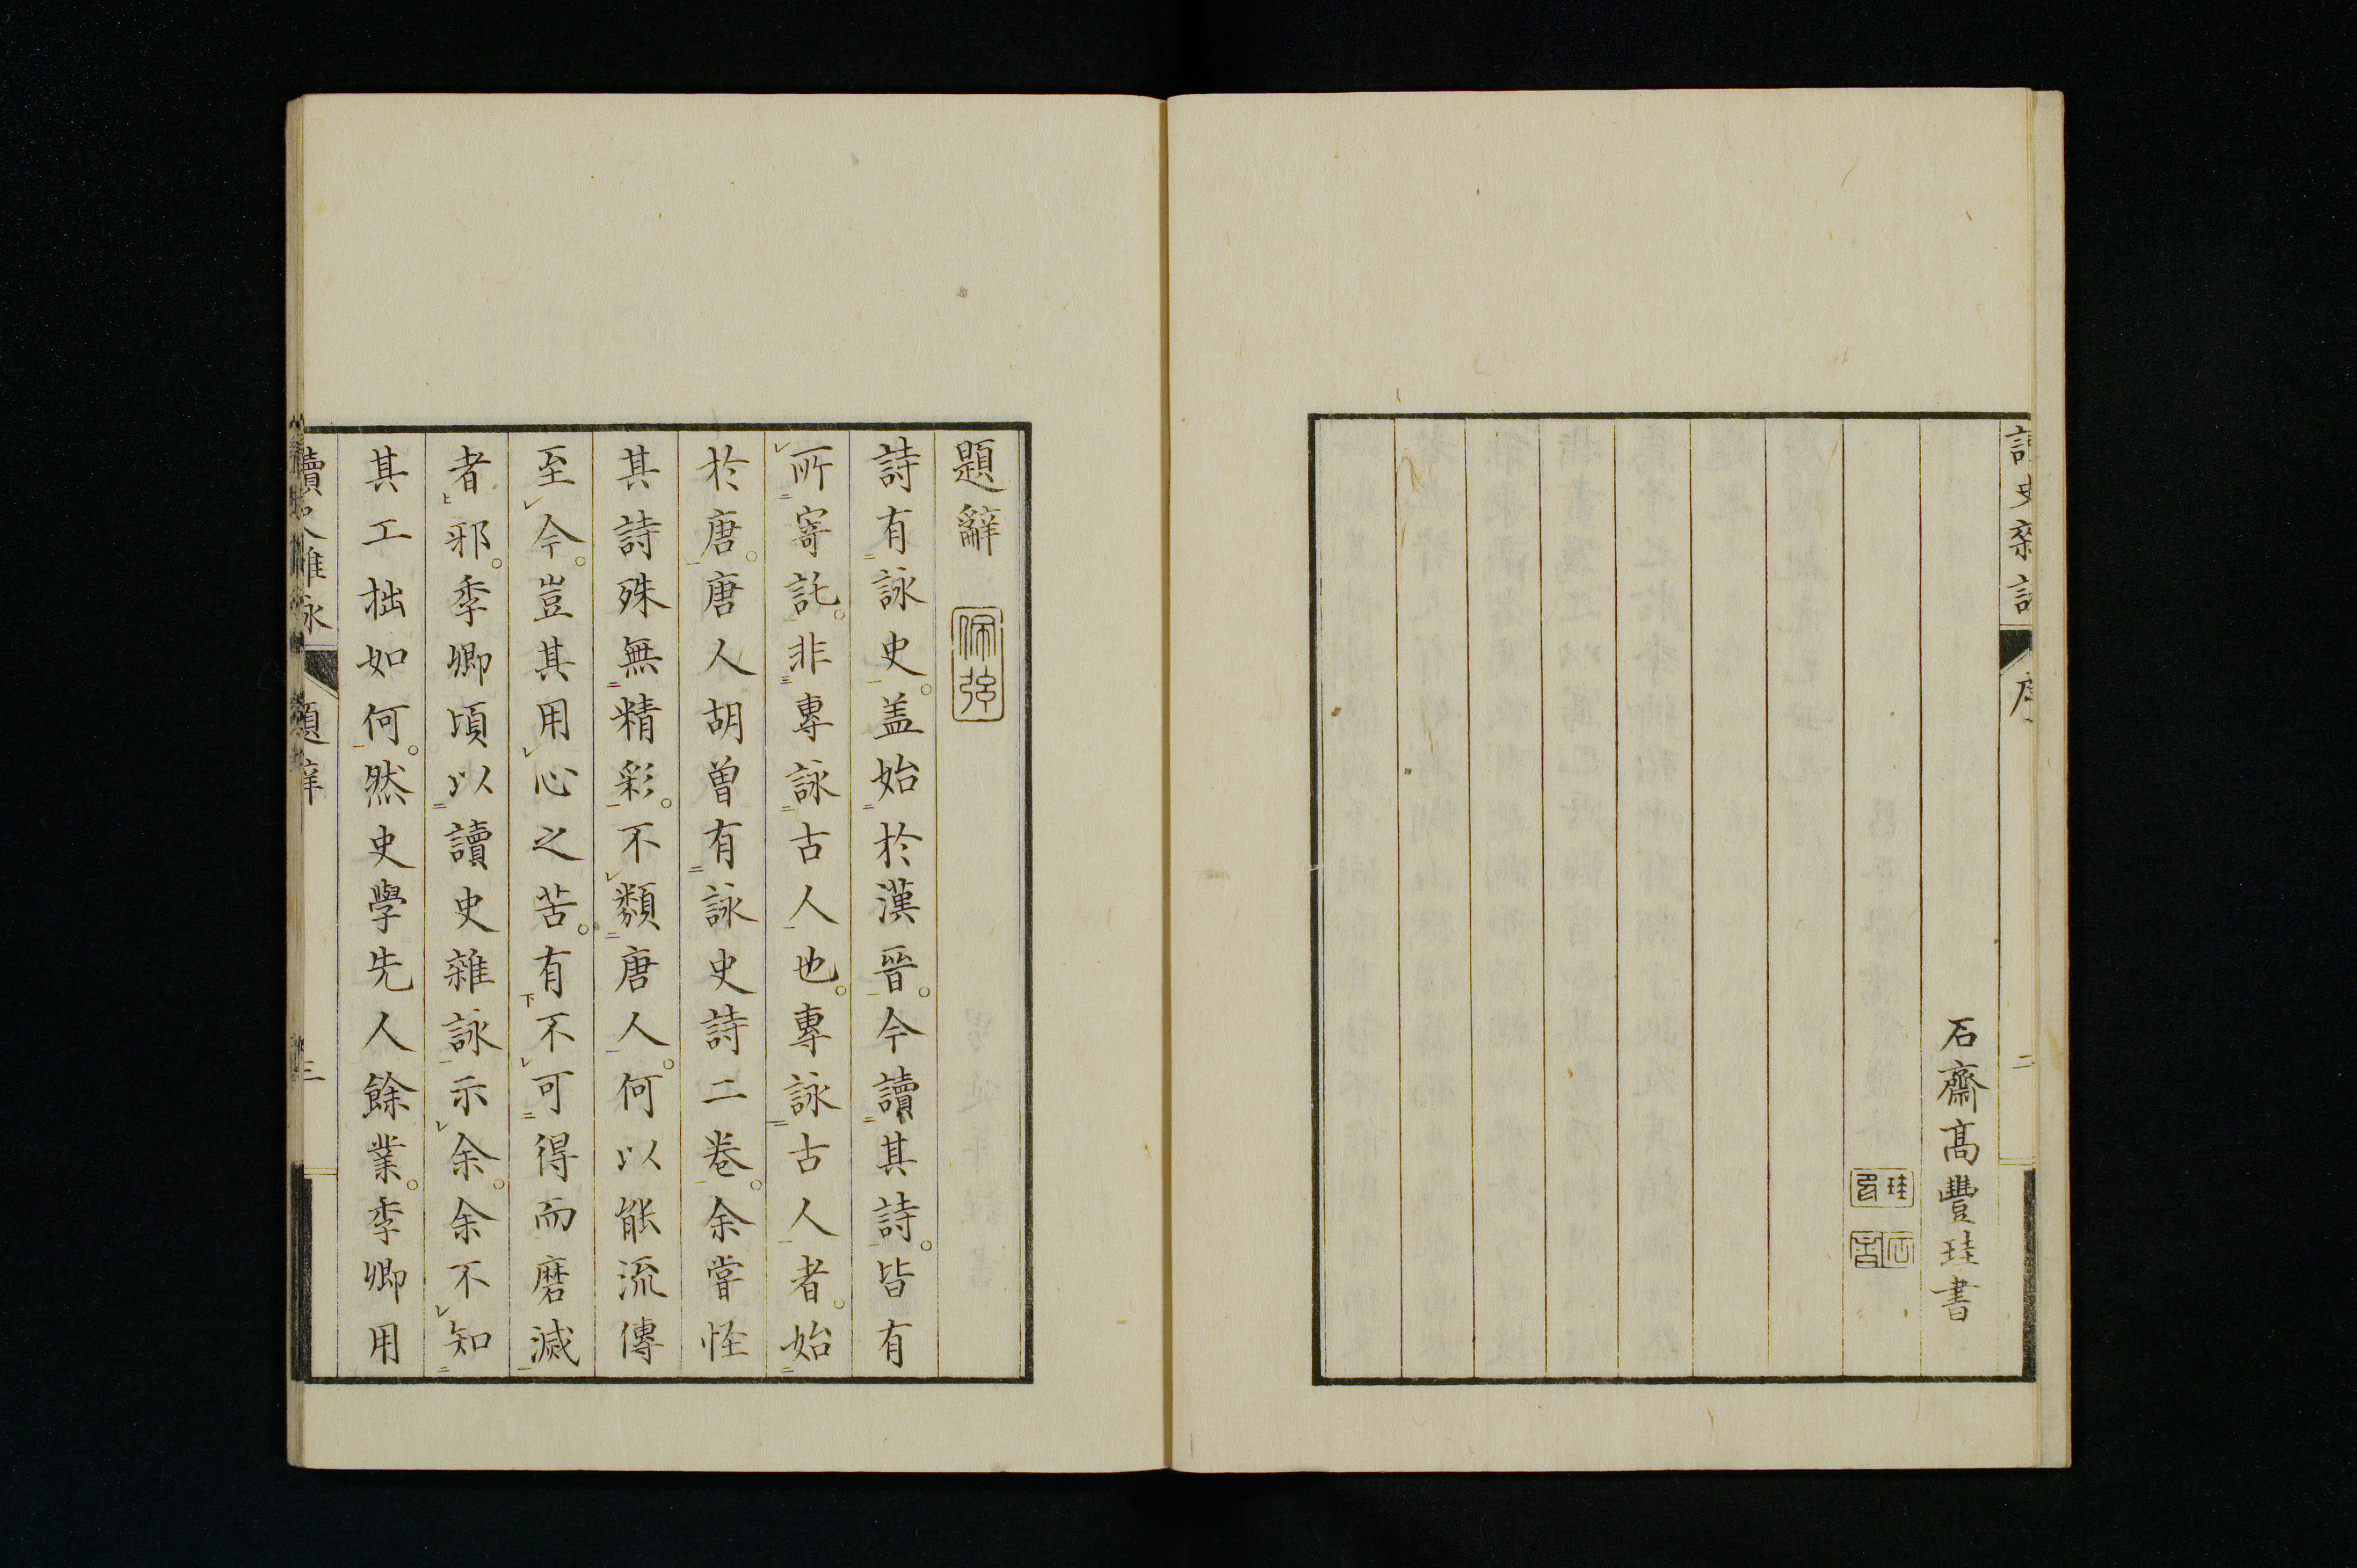 石齋髙豐珪書
題辭
詩有詠史。盖始於漢晉。今讀其詩。皆有
所寄託。非專詠古人也。專詠古人者。始
於唐。唐人胡曽有詠史詩二卷。余甞怪
其詩殊無精彩。不類唐人。何以能流傳
至今。豈其用心之苦。有不可得而磨滅
者邪。季卿頃以讀史雜詠示余。余不知
其工拙如何。然史學先人餘業。季卿用
題辭
三